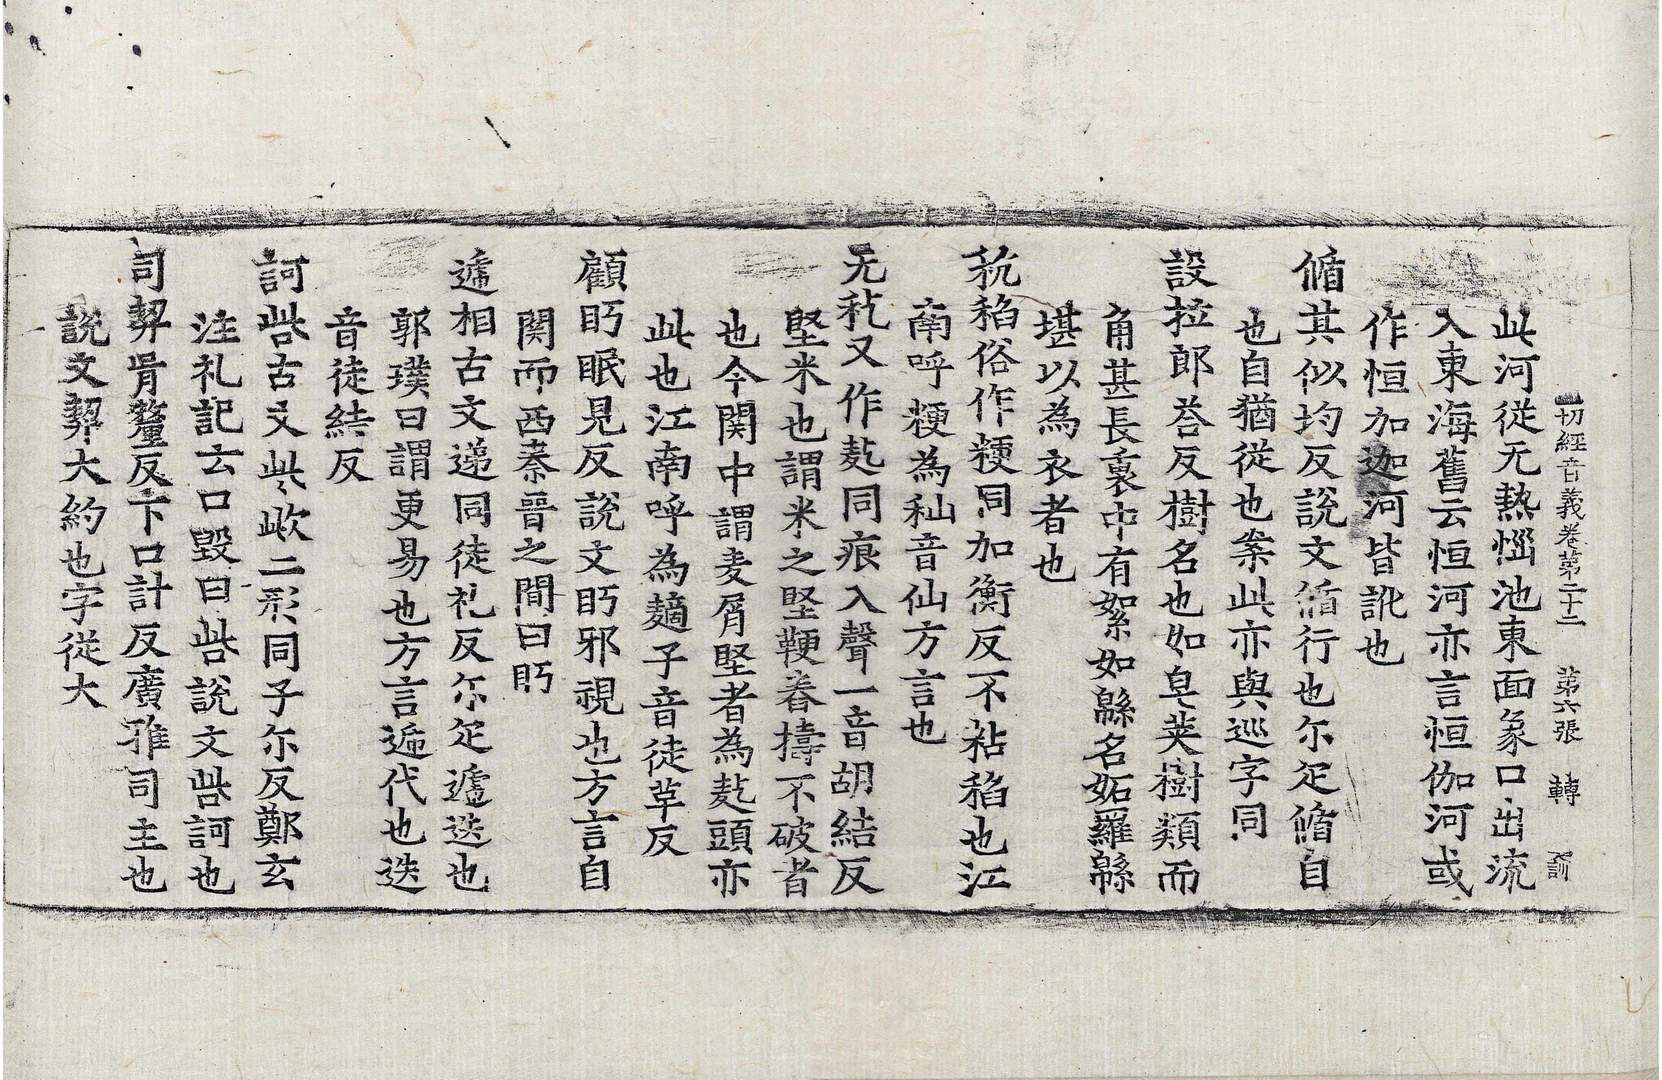 一切經音義卷第二十三 第六張 轉 訓
此河從无熱惱池東面象口出流
入東海舊云恒河亦言恒伽河或
作恒加迦河皆訛也
循其似均反說文循行也尒疋循自
也自猶從也案此亦與巡字同
設拉郎荅反樹名也如皂莢樹類而
角甚長裏中有絮如緜名妬羅緜
堪以為衣者也
秔稻俗作粳同加衡反不粘稻也江
南呼粳為秈音仙方言也
无籺又作麧同痕入聲一音胡結反
堅米也謂米之堅鞕舂擣不破者
也今関中謂麦屑堅者為麧頭亦
此也江南呼為䴬子音徒革反
顧眄眠見反說文眄邪視也方言自
関而西秦晉之間曰眄
遞相古文递同徒礼反尒疋遞迭也
郭璞曰謂更易也方言遞代也迭
音徒結反
訶呰古文呰㱔二形同子尒反鄭玄
注礼記云口毀曰呰說文呰訶也
司契胥釐反下口計反廣雅司主也
說文契大約也字從大